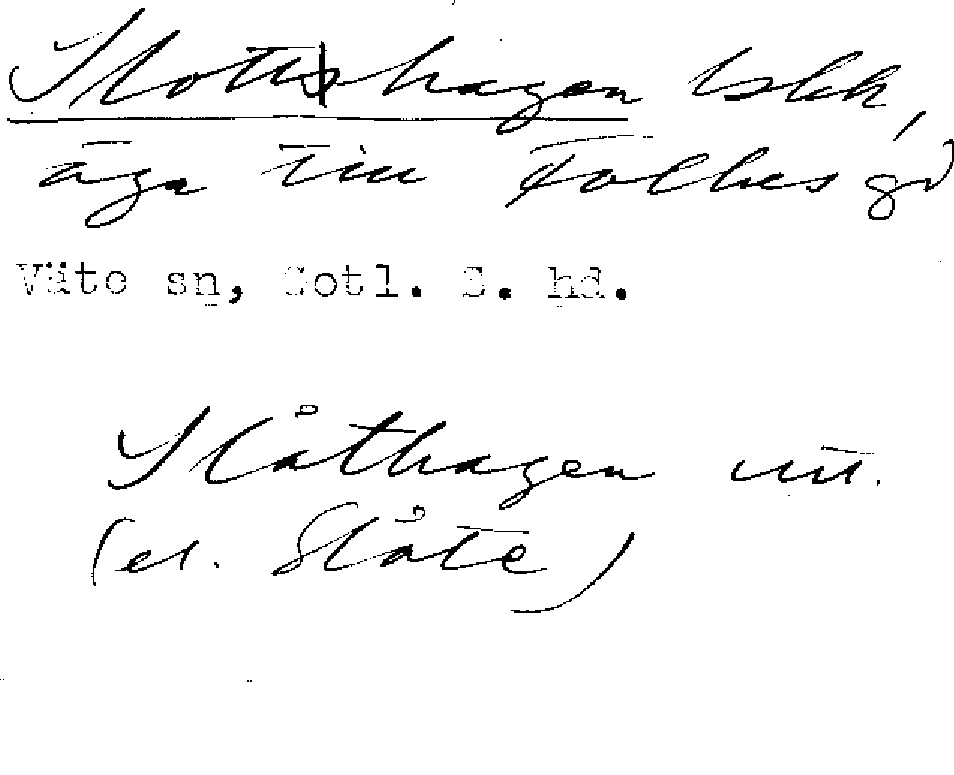 Slottshagen bskh,
äga till Folkes gd
Väte sn, Gotl. S. hd.
Slåthagen utt.
(el. Slåte)